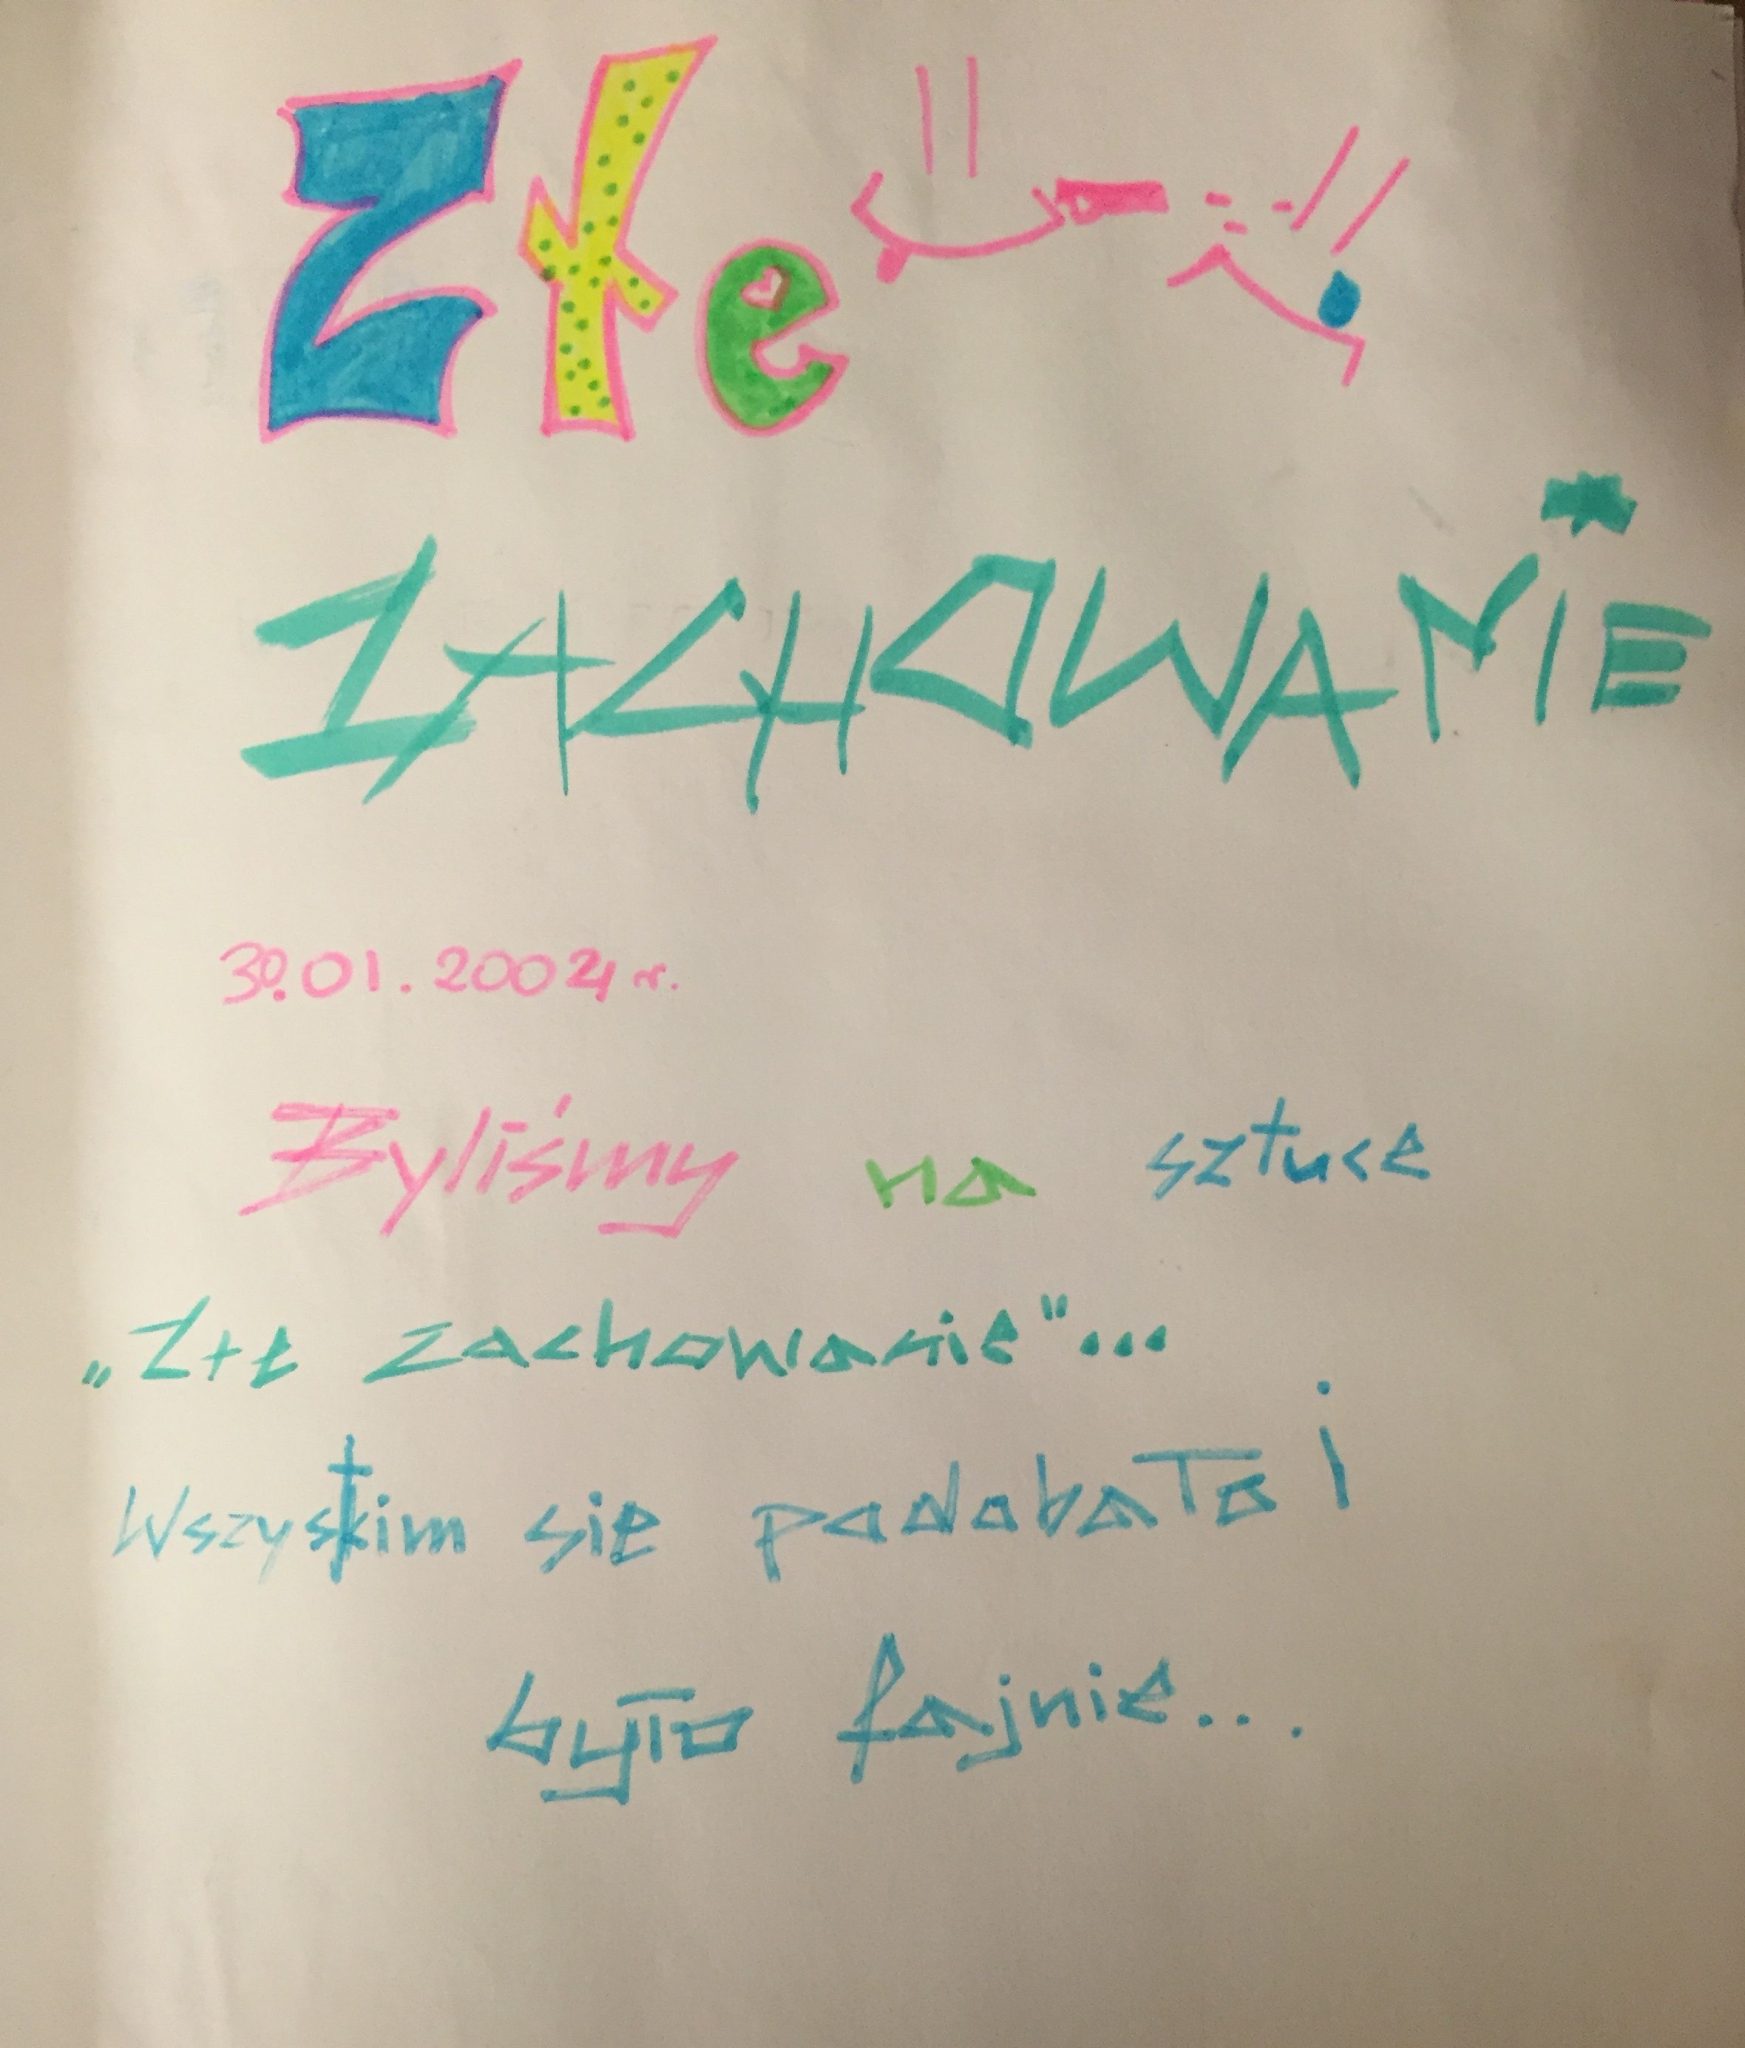 Złe
ZACHOWANIE
30.01.2004 r.
Byliśmy na sztuce
„Złe zachowanie"...
Wszystkim się podobało i
było fajnie...